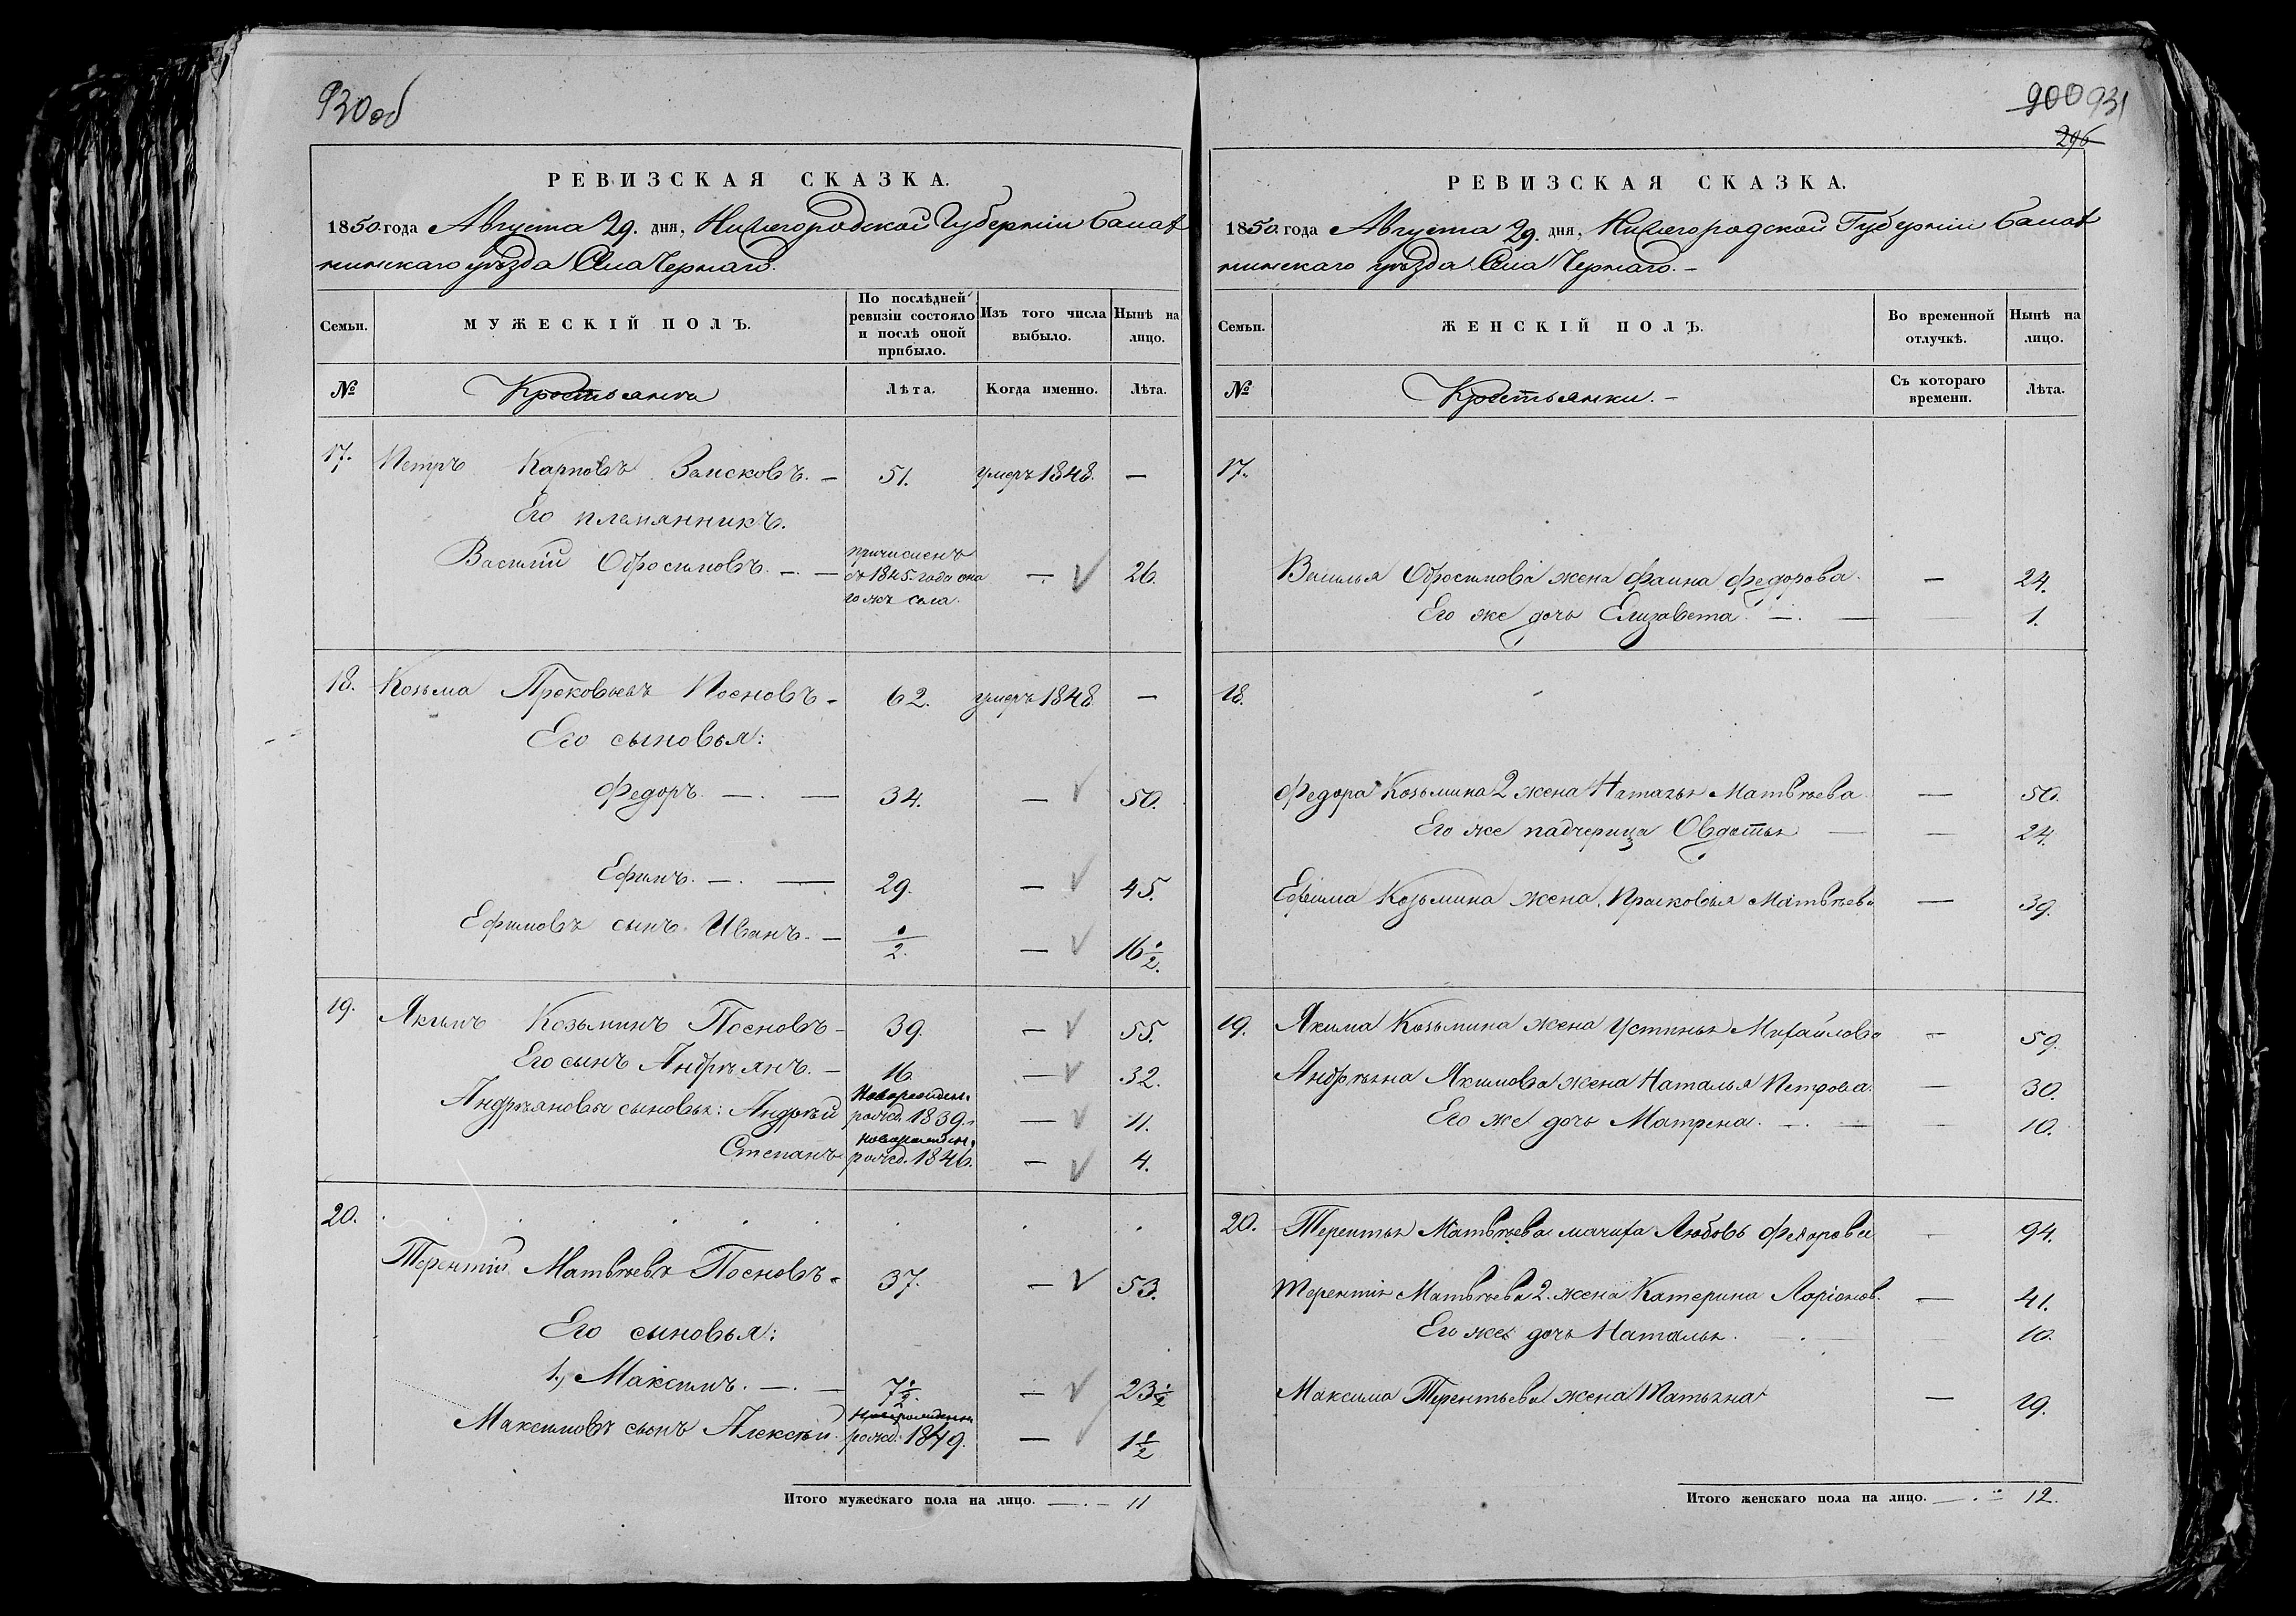 930 об
РЕВИЗСКАЯ СКАЗКА.
1850 года Августа 29. дня, Нижегородской Губерніи Балах
нинскаго уѣзда Села Чернаго.
Семьи.
МУЖЕСКІЙ ПОЛЪ.
По послѣдней ревизіи состояло и послѣ оной прибыло.
Изъ того числа выбыло.
Нынѣ на лицо.
№
Крестьяне
Лѣта.
Когда именно.
Лѣта.
17. Петръ Карповъ — 51. умеръ 1848. —
Его племянникъ.
Василій Обросимовъ. — . — причисленъ съ 1845 года она го жъ села. — 26.
18. Козьма Прокофьевъ Посновъ — 62. умеръ 1848 —
Его сыновья:
Федоръ. — . — 34. — 50.
Ефимъ. — . — 29. — 45.
Ефимовъ сынъ Иванъ. — 1/2. — 16 1/2.
19. Якимъ Козьминъ Посновъ — 39. — 55.
Его сынъ Андрѣянъ. — 16. — 32.
Андрѣяновы сыновья: Андрѣй рожд. 1839. — 11.
Степанъ рожд. 1846. — 4.
20.
Терентій Матвѣевъ Посновъ — 37. — 53.
Его сыновья:
1, Максимъ. — . — 7 1/2. — 23 1/2
Максимовъ сынъ Алексѣй рожд. 1849. — 1 1/2
Итого мужескаго пола на лицо. — . — 11
900 931
296
РЕВИЗСКАЯ СКАЗКА.
1850 года Августа 29. дня, Нижегородской Губерніи Балах
нинскаго уѣзда Села Чернаго. —
Семьи.
ЖЕНСКІЙ ПОЛЪ.
Во временной отлучкѣ.
Нынѣ на лицо.
№
Крестьянки. —
Съ котораго времени.
Лѣта.
17.
Василья Обросимова жена Фаина Федорова. — 24.
Его же дочь Елизавета. — . — 1.
18.
Федора Козьмина 2 жена Наталья Матвѣева — 50.
Его же падчерица Овдотья — — 24.
Ефима Козьмина жена Прасковья Матвѣева — 39.
19. Якима Козьмина жена Устинья Михайлова — 59.
Андрѣяна Якимова жена Наталья Петрова. — 30.
Его же дочь Матрена. — . — — 10.
20. Терентья Матвѣева мачиха Любовь Федорова — 94.
Терентія Матвѣева 2. жена Катерина Ларіонов. — 41.
Его же дочь Наталья. — . — 10.
Максима Терентьева жена Татьяна — 19.
Итого женскаго пола на лицо. — . — 12.